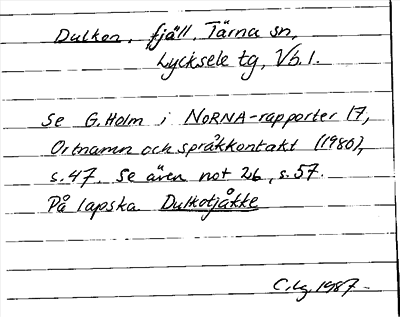 Dulken, fjäll, Tärna sn,
Lycksele tg, Vb.l.
Se G. Holm i NORNA-rapporter 17,
Ortnamn och språkkontakt (1980),
s.47. Se även not 26, s.57.
På lapska Dulkotjåkke
C.Lg. 1987